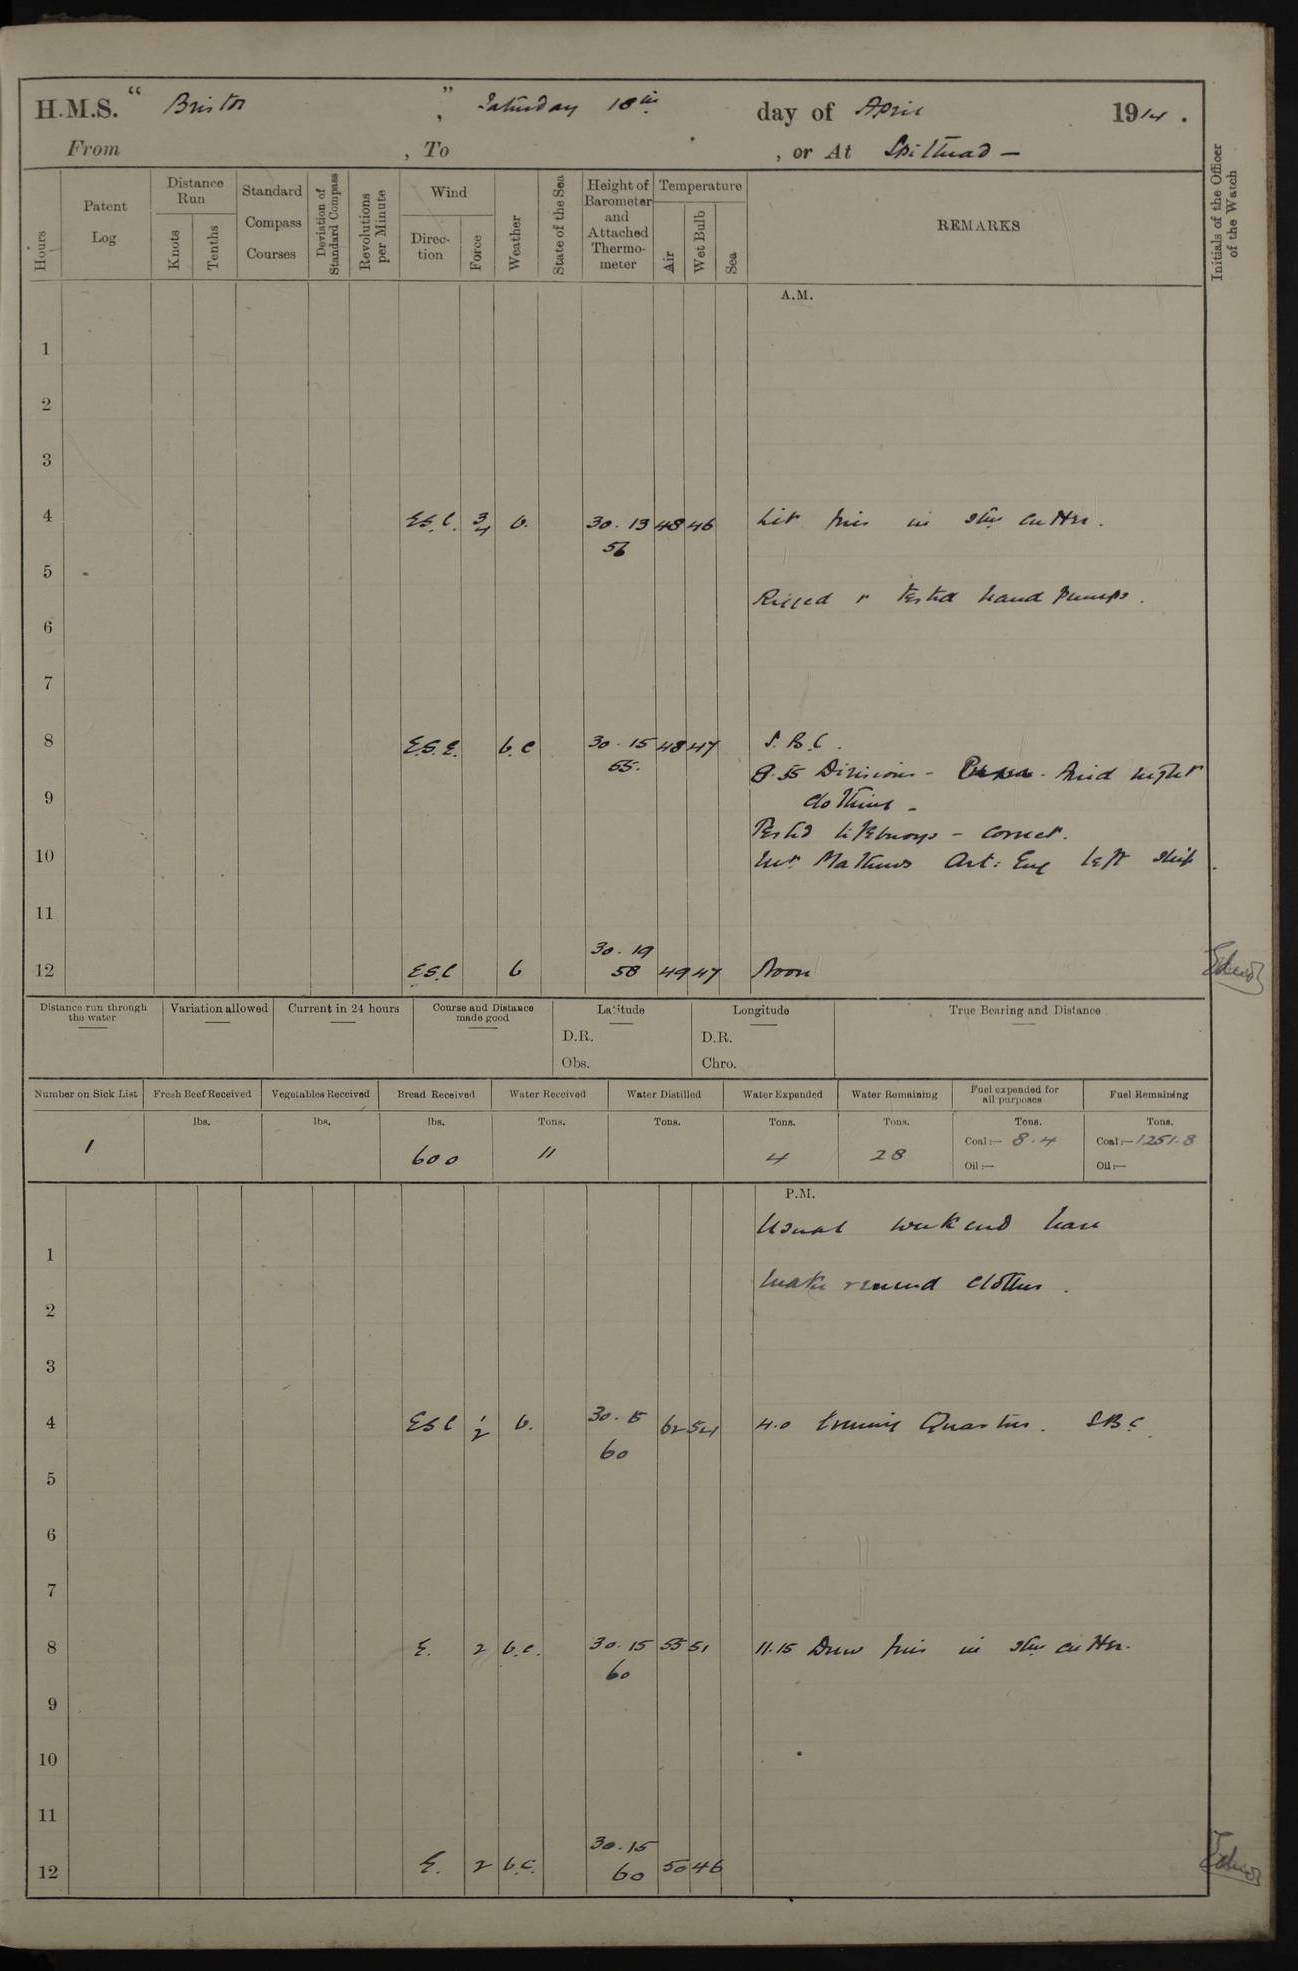 H.M.S. "Bristol", Saturday 18th day of April 1914.
From , To , or At Spithead —
Hours
Patent Log
Distance Run
Knots
Tenths
Standard Compass Courses
Deviation of Standard Compass
Revolutions per Minute
Wind
Direction
Force
Weather
State of the Sea
Height of Barometer and Attached Thermometer
Temperature
Air
Wet Bulb
Sea
REMARKS
Initials of the Officer of the Watch
A.M.
1
2
3
4 E.S.E. 3/4 b. 30.13 48 46 Lit fires in stm cutter.
56
5
Rigged & tested hand pumps.
6
7
8 E.S.E. b.c 30.15 48 47 S.B.C.
55.
8.55 Divisions - night
9 clothing -
Tested lifebuoys - correct.
10 Mr Mathews Art: Eng left ship.
11
30.19
12 E.S.E b 58 49 47 Noon
Distance run through the water
Variation allowed
Current in 24 hours
Course and Distance made good
Latitude
D.R.
Obs.
Longitude
D.R.
Chro.
True Bearing and Distance
Number on Sick List
Fresh Beef Received
Vegetables Received
Bread Received
Water Received
Water Distilled
Water Expended
Water Remaining
Fuel expended for all purposes
Fuel Remaining
lbs. lbs. lbs. Tons. Tons. Tons. Tons. Tons. Tons.
1 600 11 4 28 Coal:— 8.4 Coal:— 1251.8
Oil:— Oil:—
P.M.
Usual weekend leave
1
Make & mend clothes.
2
3
4 E S E 1/2 b. 30.15 62 54 4.0 Evening Quarters. S.B.C.
60
5
6
7
8 E. 2 b.c. 30.15 55 51 11.15 Drew fires in stm cutter.
60
9
10
11
30.15
12 E. 2 b.c. 60 50 46